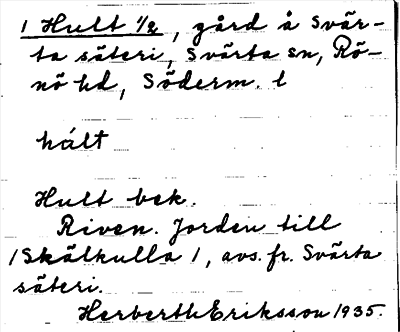 1 Hult 1/2, gård å Svär-
ta säteri, Svärta sn, Rö-
nö hd, Söderm. l
hált
Hult bek.
Riven. Jorden till
1 Skälkulla 1, avs. fr. Svärta
säteri.
Herberth Eriksson 1935.